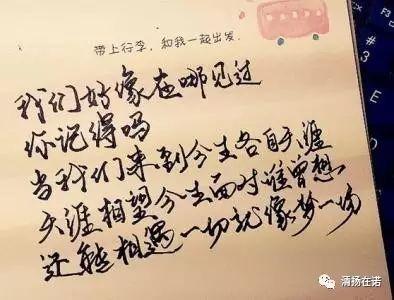 带上行李，和我一起出发.
我们好像在哪见过
你记得吗
当我们来到今生各自天涯
天涯相望今生面对谁曾想
还能相遇一切就像梦一场
清扬在诺